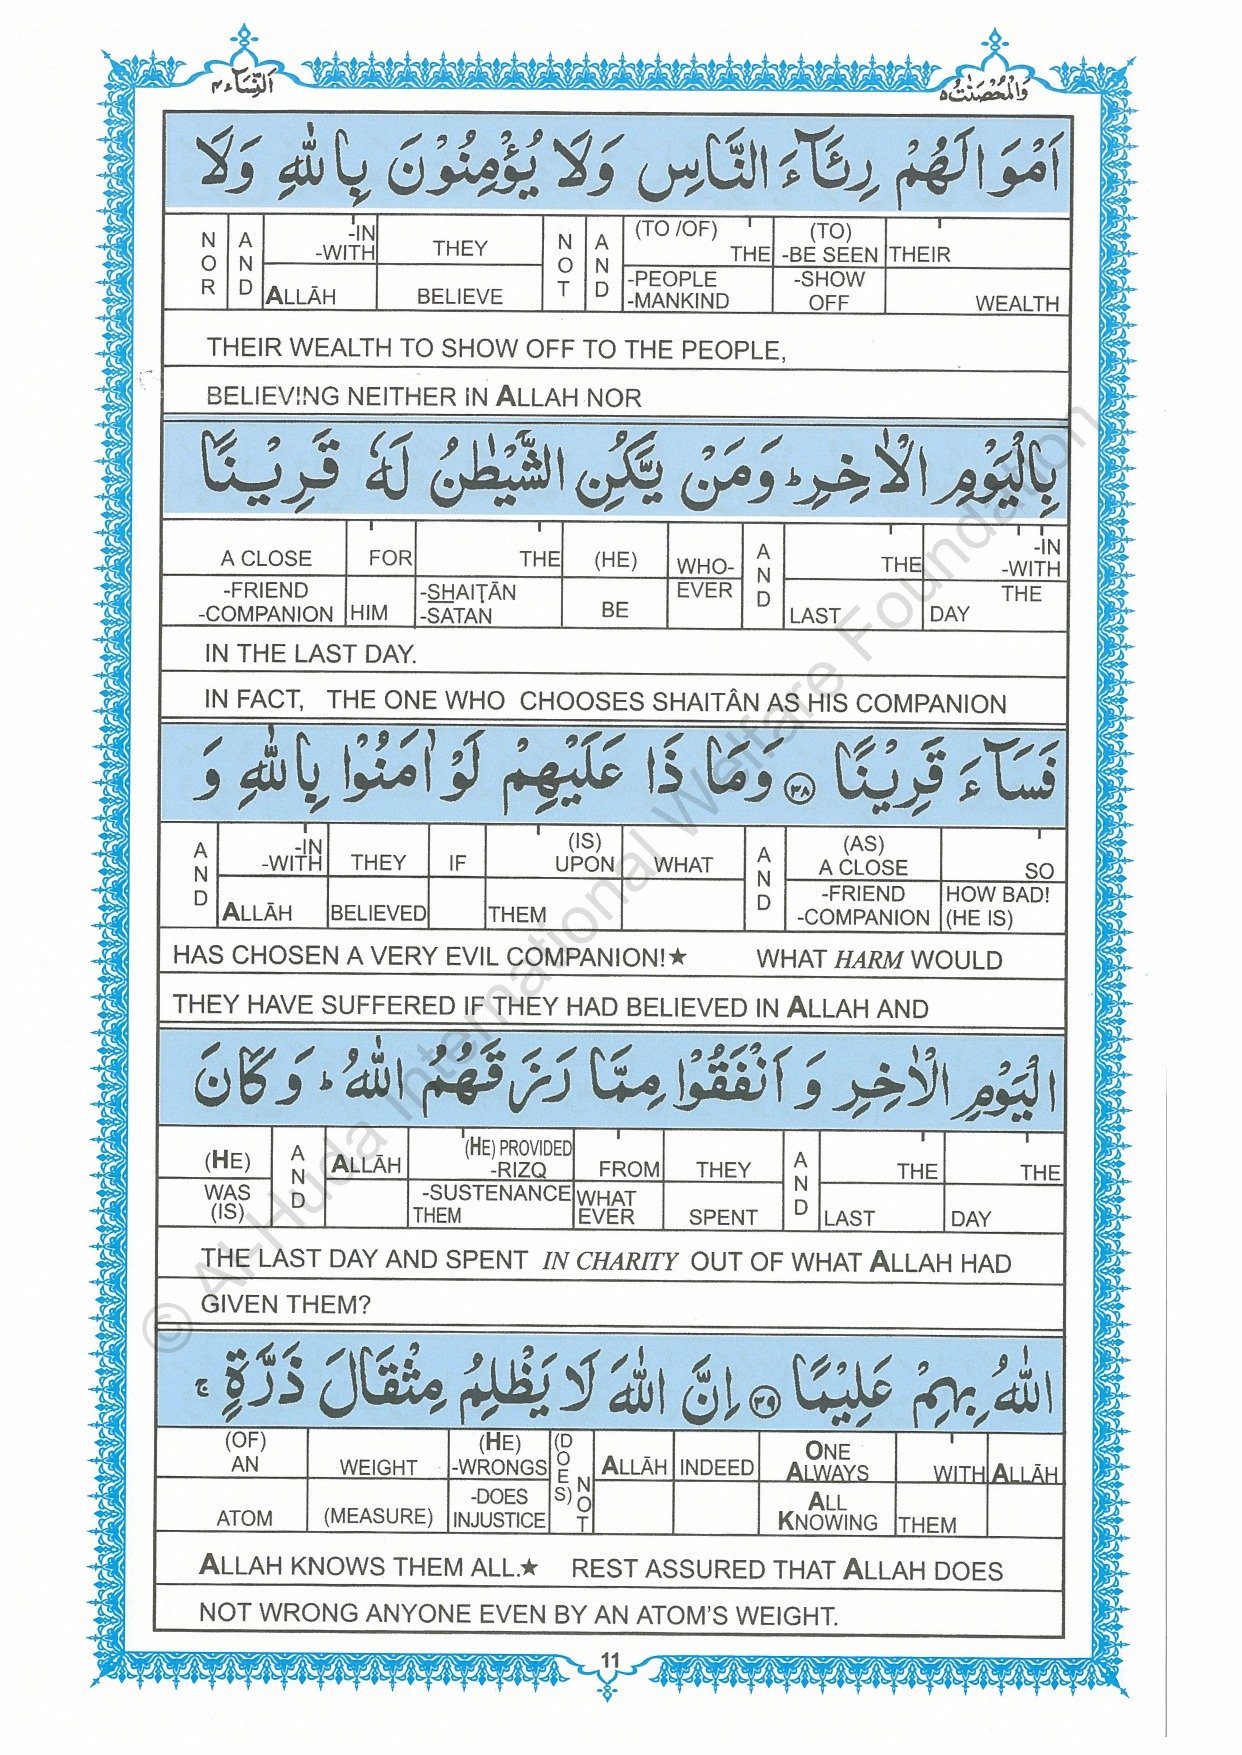 اَلنِّسَآء ٤
وَالْمُحْصَنٰتُ ٥
اَمْوَالَهُمْ رِئَآءَ النَّاسِ وَلَا يُؤْمِنُوْنَ بِاللّٰهِ وَلَا
NOR AND -IN -WITH THEY NOT AND (TO /OF) THE (TO) -BE SEEN THEIR
ALLĀH BELIEVE -PEOPLE -MANKIND -SHOW OFF WEALTH
THEIR WEALTH TO SHOW OFF TO THE PEOPLE,
BELIEVING NEITHER IN ALLAH NOR
بِالْيَوْمِ الْاٰخِرِ ؕ وَمَنْ يَّكُنِ الشَّيْطٰنُ لَهٗ قَرِيْنًا
A CLOSE FOR THE (HE) WHO- AND THE -IN -WITH
-FRIEND -COMPANION HIM -SHAIṬĀN -SATAN BE EVER LAST THE DAY
IN THE LAST DAY.
IN FACT, THE ONE WHO CHOOSES SHAITÂN AS HIS COMPANION
فَسَآءَ قَرِيْنًا ٣٨ وَمَا ذَا عَلَيْهِمْ لَوْ اٰمَنُوْا بِاللّٰهِ وَ
AND -IN -WITH THEY IF (IS) UPON WHAT AND (AS) A CLOSE SO
ALLĀH BELIEVED THEM -FRIEND -COMPANION HOW BAD! (HE IS)
HAS CHOSEN A VERY EVIL COMPANION!★ WHAT HARM WOULD
THEY HAVE SUFFERED IF THEY HAD BELIEVED IN ALLAH AND
الْيَوْمِ الْاٰخِرِ وَ اَنْفَقُوْا مِمَّا رَزَقَهُمُ اللّٰهُ ؕ وَ كَانَ
(HE) AND ALLĀH (HE) PROVIDED -RIZQ FROM THEY AND THE THE
WAS (IS) -SUSTENANCE THEM WHAT EVER SPENT LAST DAY
THE LAST DAY AND SPENT IN CHARITY OUT OF WHAT ALLAH HAD
GIVEN THEM?
اللّٰهُ بِهِمْ عَلِيْمًا ٣٩ اِنَّ اللّٰهَ لَا يَظْلِمُ مِثْقَالَ ذَرَّةٍ ۚ
(OF) AN WEIGHT (HE) -WRONGS (DOES) NOT ALLĀH INDEED ONE ALWAYS WITH ALLĀH
ATOM (MEASURE) -DOES INJUSTICE ALL KNOWING THEM
ALLAH KNOWS THEM ALL.★ REST ASSURED THAT ALLAH DOES
NOT WRONG ANYONE EVEN BY AN ATOM'S WEIGHT.
11
© Al-Huda International Welfare Foundation